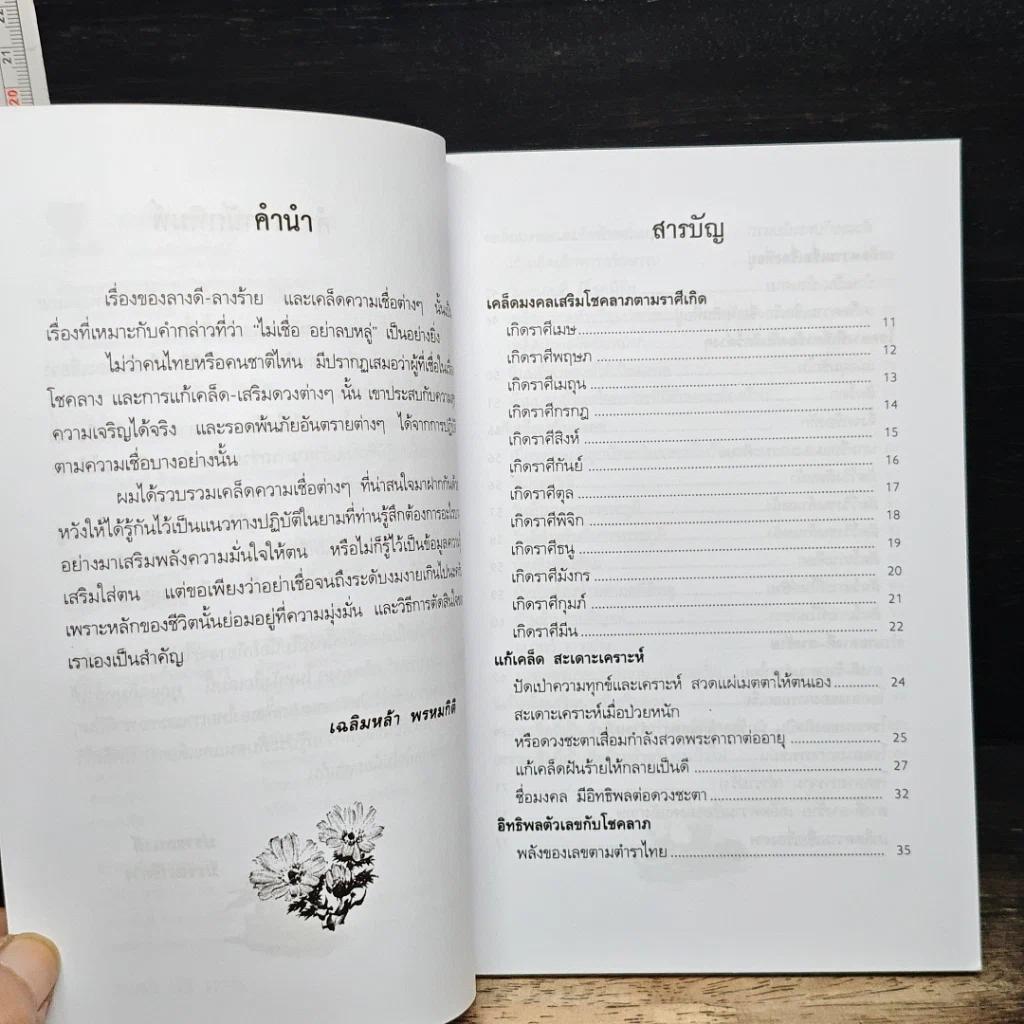 22
21
20
คำนำ
เรื่องของลางดี-ลางร้าย และเคล็ดความเชื่อต่างๆ นั้นเป็น
เรื่องที่เหมาะกับคำกล่าวที่ว่า "ไม่เชื่อ อย่าลบหลู่" เป็นอย่างยิ่ง
ไม่ว่าคนไทยหรือคนชาติไหน มีปรากฏเสมอว่าผู้ที่เชื่อใน
โชคลาง และการแก้เคล็ด-เสริมดวงต่างๆ นั้น เขาประสบกับความ
ความเจริญได้จริง และรอดพ้นภัยอันตรายต่างๆ ได้จากการปฏิบัติ
ตามความเชื่อบางอย่างนั้น
ผมได้รวบรวมเคล็ดความเชื่อต่างๆ ที่น่าสนใจมาฝากกันด้วย
หวังให้ได้รู้กันไว้เป็นแนวทางปฏิบัติในยามที่ท่านรู้สึกต้องการ
อย่างมาเสริมพลังความมั่นใจให้ตน หรือไม่ก็รู้ไว้เป็นข้อมูลความรู้
เสริมใส่ตน แต่ขอเพียงว่าอย่าเชื่อจนถึงระดับงมงายเกินไป
เพราะหลักของชีวิตนั้นย่อมอยู่ที่ความมุ่งมั่น และวิธีการตัดสินใจของ
เราเองเป็นสำคัญ
เฉลิมหล้า พรหมกิติ
สารบัญ
เคล็ดมงคลเสริมโชคลาภตามราศีเกิด
เกิดราศีเมษ 11
เกิดราศีพฤษภ 12
เกิดราศีเมถุน 13
เกิดราศีกรกฎ 14
เกิดราศีสิงห์ 15
เกิดราศีกันย์ 16
เกิดราศีตุล 17
เกิดราศีพิจิก 18
เกิดราศีธนู 19
เกิดราศีมังกร 20
เกิดราศีกุมภ์ 21
เกิดราศีมีน 22
แก้เคล็ด สะเดาะเคราะห์
ปัดเป่าความทุกข์และเคราะห์ สวดแผ่เมตตาให้ตนเอง 24
สะเดาะเคราะห์เมื่อป่วยหนัก
หรือดวงชะตาเสื่อมกำลังสวดพระคาถาต่ออายุ 25
แก้เคล็ดฝันร้ายให้กลายเป็นดี 27
ชื่อมงคล มีอิทธิพลต่อดวงชะตา 32
อิทธิพลตัวเลขกับโชคลาภ
พลังของเลขตามตำราไทย 35